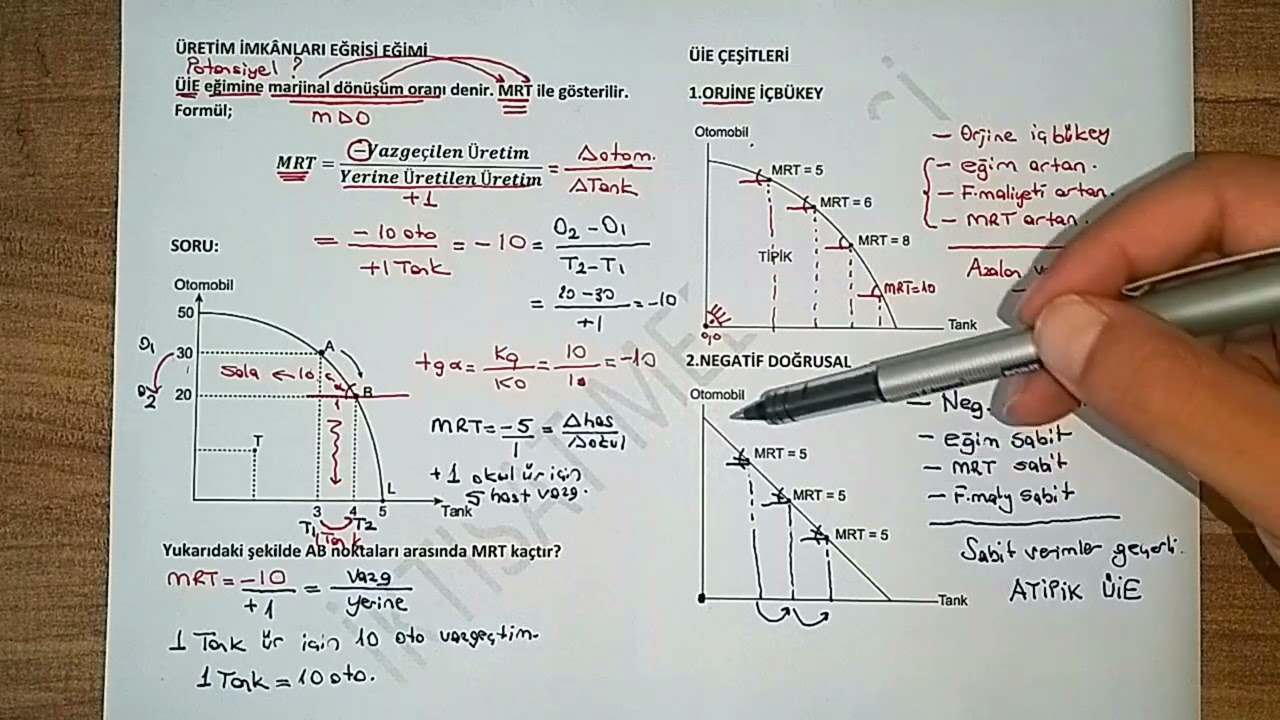 ÜRETİM İMKÂNLARI EĞRİSİ EĞİMİ
Potansiyel ?
ÜİE eğimine marjinal dönüşüm oranı denir. MRT ile gösterilir.
Formül;
MDO
MRT = −Vazgeçilen Üretim / Yerine Üretilen Üretim = Δotom. / ΔTank
+1
= −10 oto / +1 Tank = −10 = O2 − O1 / T2 − T1
= 20 − 30 / +1 = −10
SORU:
Otomobil
50
O1 30 A
Sola ← 10
O2 20 B
T
L
3 4 5 Tank
T1 T2
1 Tank
tgα = Kq / KO = 10 / 10 = −10
MRT = −5 / 1 = Δhas / Δokul
+1 okul ür için
5 hast vazg.
Yukarıdaki şekilde AB noktaları arasında MRT kaçtır?
MRT = −10 / +1 = vazg / yerine
1 Tank ür için 10 oto vazgeçtim.
1 Tank = 10 oto.
ÜİE ÇEŞİTLERİ
1.ORJİNE İÇBÜKEY
Otomobil
MRT = 5
MRT = 6
MRT = 8
MRT=10
TİPİK
0,0
Tank
– Orjine içbükey
– eğim artan.
– F.maliyeti artan.
– MRT artan
Azalan
2.NEGATİF DOĞRUSAL
Otomobil
MRT = 5
MRT = 5
MRT = 5
Tank
– Neg.
– eğim sabit
– MRT sabit
– F.maly sabit
Sabit verimler geçerli.
ATİPİK ÜİE
İKTİSATİME